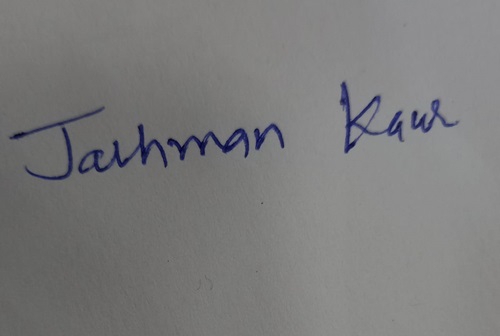 Jashman Kaur